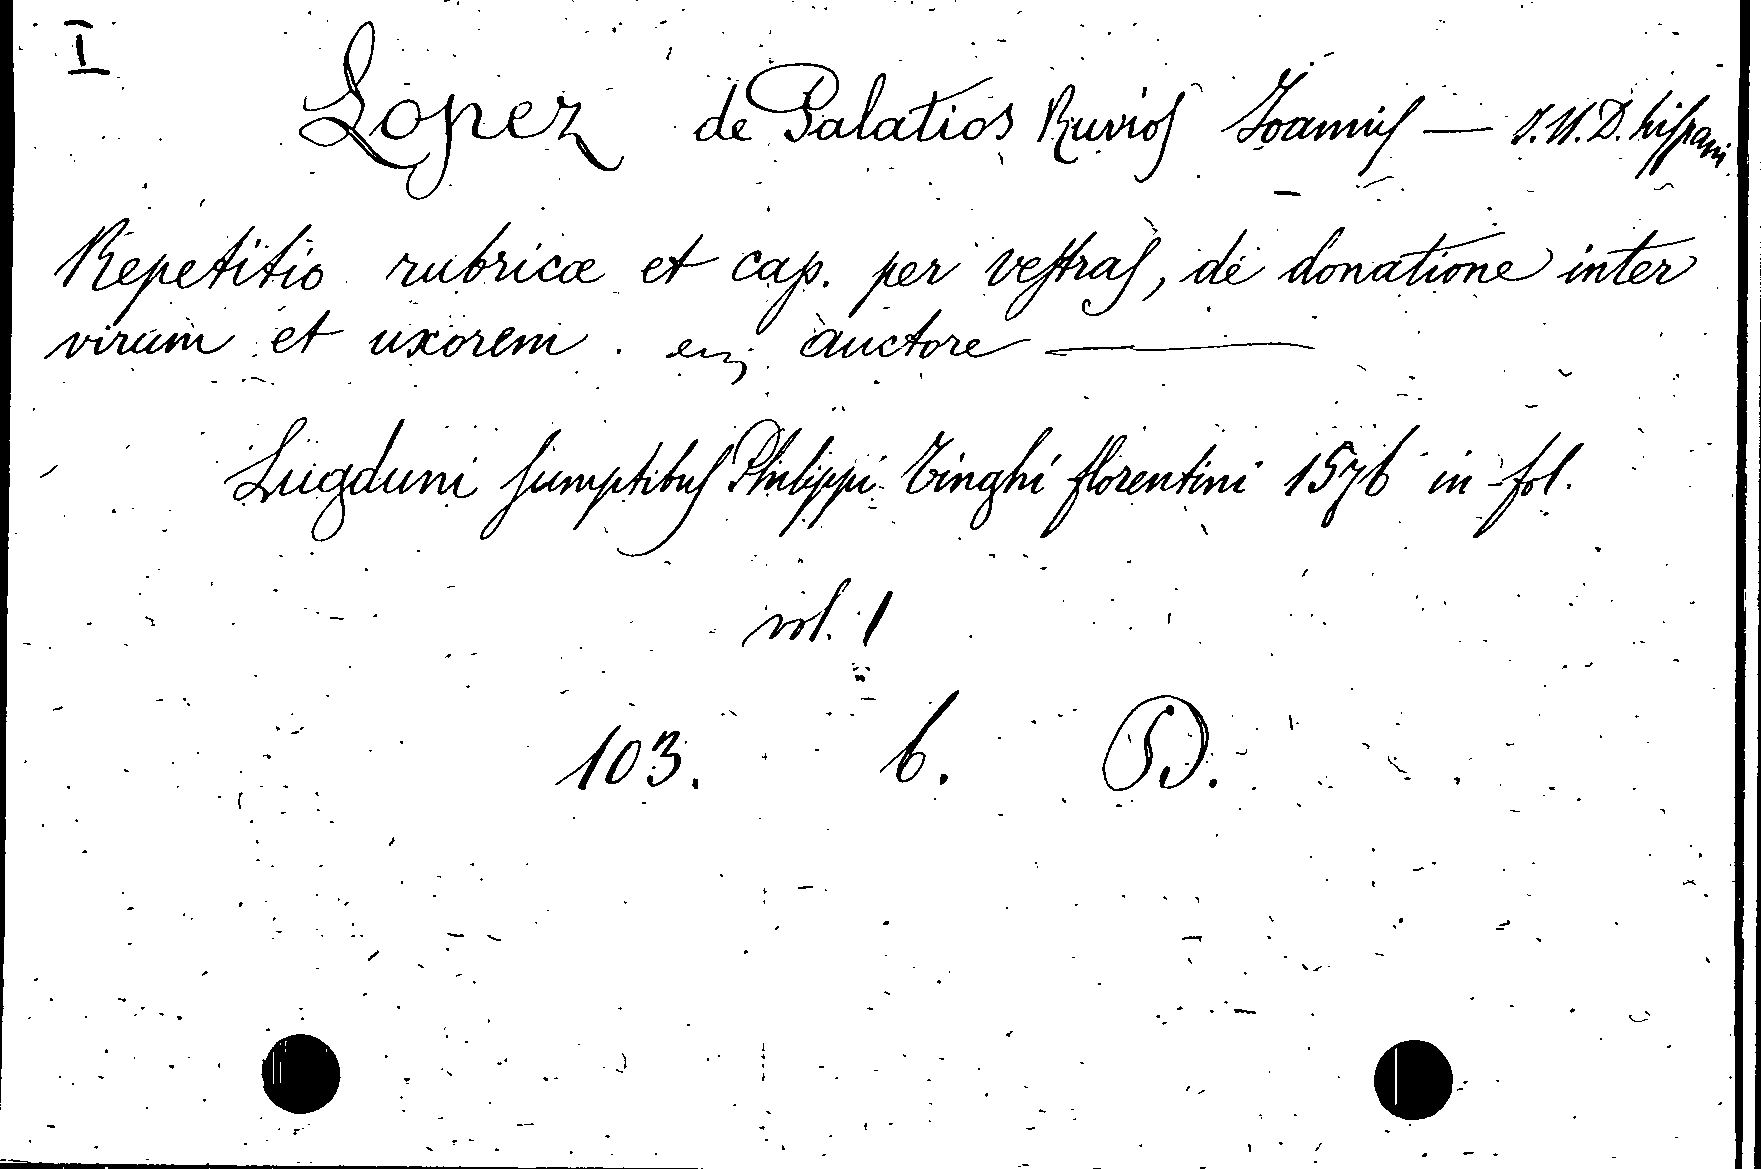 I
Lopez de Palatios Ruvios Joannis — J. U. D. hispani.
Repetitio rubricæ et cap. per vestras, de donatione inter
virum et uxorem. auctore —
Lugduni sumptibus Philippi Tinghi florentini 1576 in fol.
vol. 1
103. 6. D.